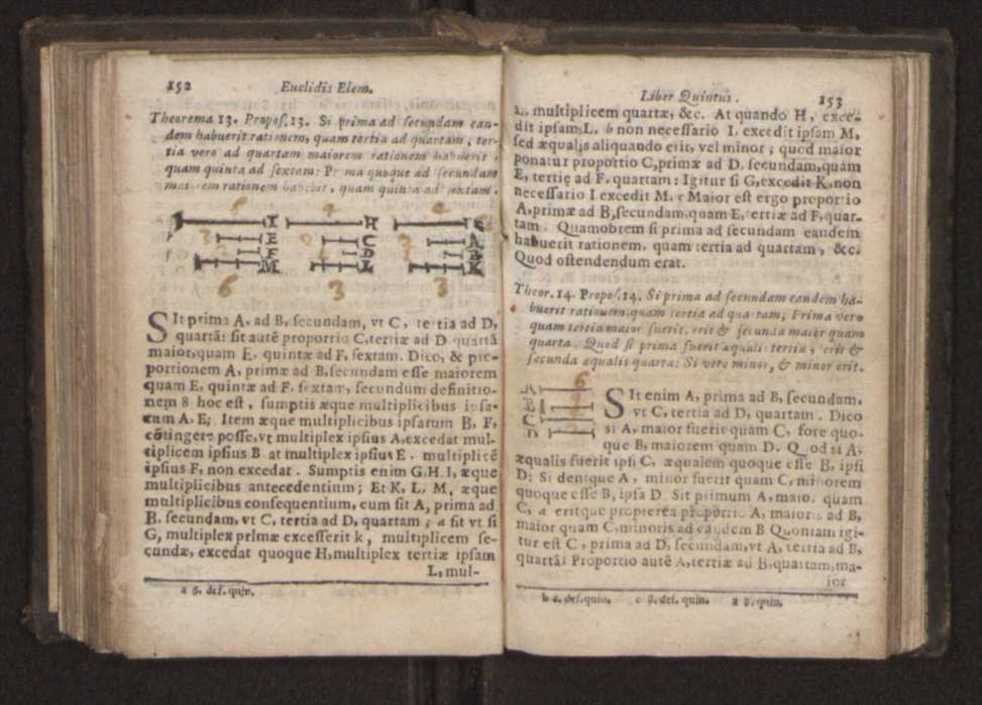 152 Euclidis Elem.
Theorema 13. Propos. 13. Si prima ad secundam ean-
dem habuerit rationem, quam tertia ad quartam, ter-
tia vero ad quartam maiorem rationem habuerit,
quam quinta ad sextam: Prima quoque ad secundam
maiorem rationem habebit, quam quinta ad sextam.
6 9 6
I H G
3 E C A
F D B
M L K
6 3 3
SIt prima A, ad B, secundam, vt C, tertia ad D,
quartã: sit autẽ proportio C, tertiæ ad D quartã
maior, quam E, quintæ ad F, sextam. Dico, &
portionem A, primæ ad B, secundam esse maiorem
quam E, quintæ ad F, sextam, secundum definitio-
nem 8 hoc est, sumptis æque multiplicibus ipsa-
rum A, E; Item æque multiplicibus ipsarum B, F,
cõtingere posse, vt multiplex ipsius A, excedat mul-
tiplicem ipsius B at multiplex ipsius E, multiplicẽ
ipsius F, non excedat. Sumptis enim G. H. I, æque
multiplicibus antecedentium; Et K, L, M, æque
multiplicibus consequentium, cum sit A, prima ad
B, secundam, vt C, tertia ad D, quartam; a sit vt si
G, multiplex primæ excesserit k, multiplicem se-
cundæ, excedat quoque H, multiplex tertiæ ipsam
L, mul-
a 6. def. quin.
Liber Quintus. 153
L, multiplicem quartæ, &c. At quando H, exce-
dit ipsam L, b non necessario I, excedit ipsam M,
sed æqualis aliquando erit, vel minor; quod maior
ponatur proportio C, primæ ad D, secundam, quam
E, tertię ad F, quartam: Igitur si G, excedit K, non
necessario I excedit M, c Maior est ergo proportio
A, primæ ad B, secundam, quam E, tertiæ ad F, quar-
tam. Quamobrem si prima ad secundam eandem
habuerit rationem, quam tertia ad quartam, &c.
Quod ostendendum erat.
Theor. 14. Propos. 14. Si prima ad secundam eandem ha-
buerit rationem, quam tertia ad quartam; Prima vero
quam tertia maior fuerit, erit & secunda maior quam
quarta. Quod si prima fuerit æqualis tertiæ, erit &
secunda æqualis quartæ: Si vero minor, & minor erit.
6
A
B
C
D
SIt enim A, prima ad B, secundam,
vt C, tertia ad D, quartam. Dico
si A, maior fuerit quam C, fore quo-
que B, maiorem quam D. Quod si A,
æqualis fuerit ipsi C, æqualem quoque esse B, ipsi
D: Si denique A, minor fuerit quam C, minorem
quoque esse B, ipsa D. Sit primum A, maior quam
C, a eritque propterea proportio A, maioris ad B,
maior quam C, minoris ad eandem B Quoniam igi-
tur est C, prima ad D, secundam, vt A, tertia ad B,
quartã: Proportio autẽ A, tertiæ ad B, quartam, ma-
ior
b def. quin. c 8. def. quin. a 8. quin.